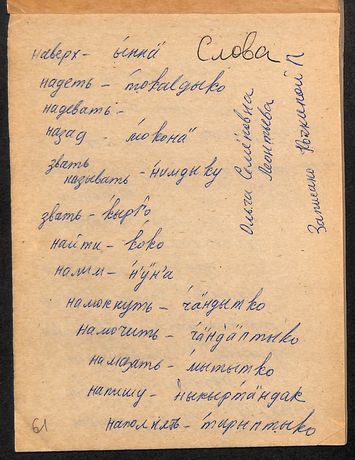 Слова
наверх - ы́ннӓ
надеть - то́калдыко
надевать -
назад - мо́конӓ
звать
называть - ни́мдыку
звать - кы́ргo
найти - ко́ко
налим - н'у́н'а
намокнуть - чӓ́ндытко
намочить - чӓ́ндӓптыко
намазать - мы́тытко
напишу - ны́кыртӓндак
наполнять - та́рыптыко
Ольга Семёновна
Леонтьева
Записано
61